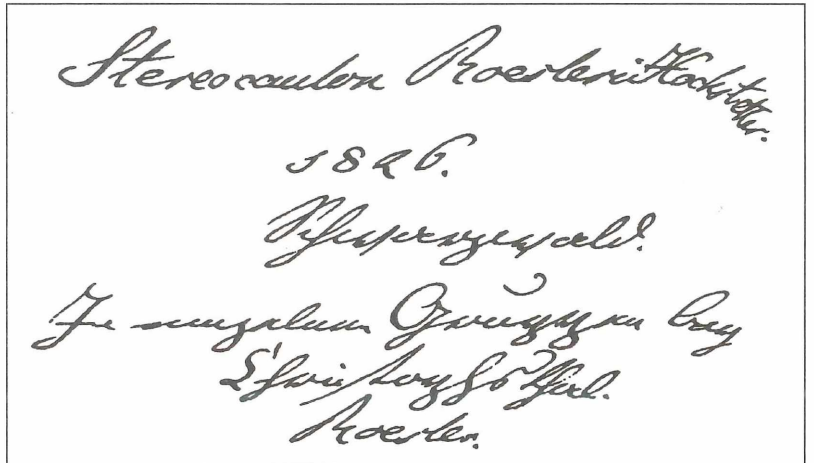 Stereocaulon Roesleri Hochstetter.
1826.
Schwarzwald.
In einzelnen Gruppen bey
Christophsthal.
Roesler.